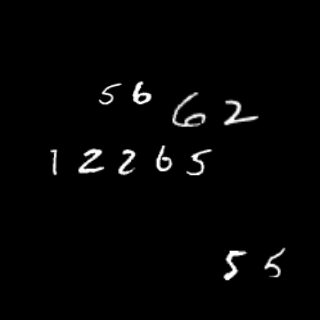 56
62
12265
55